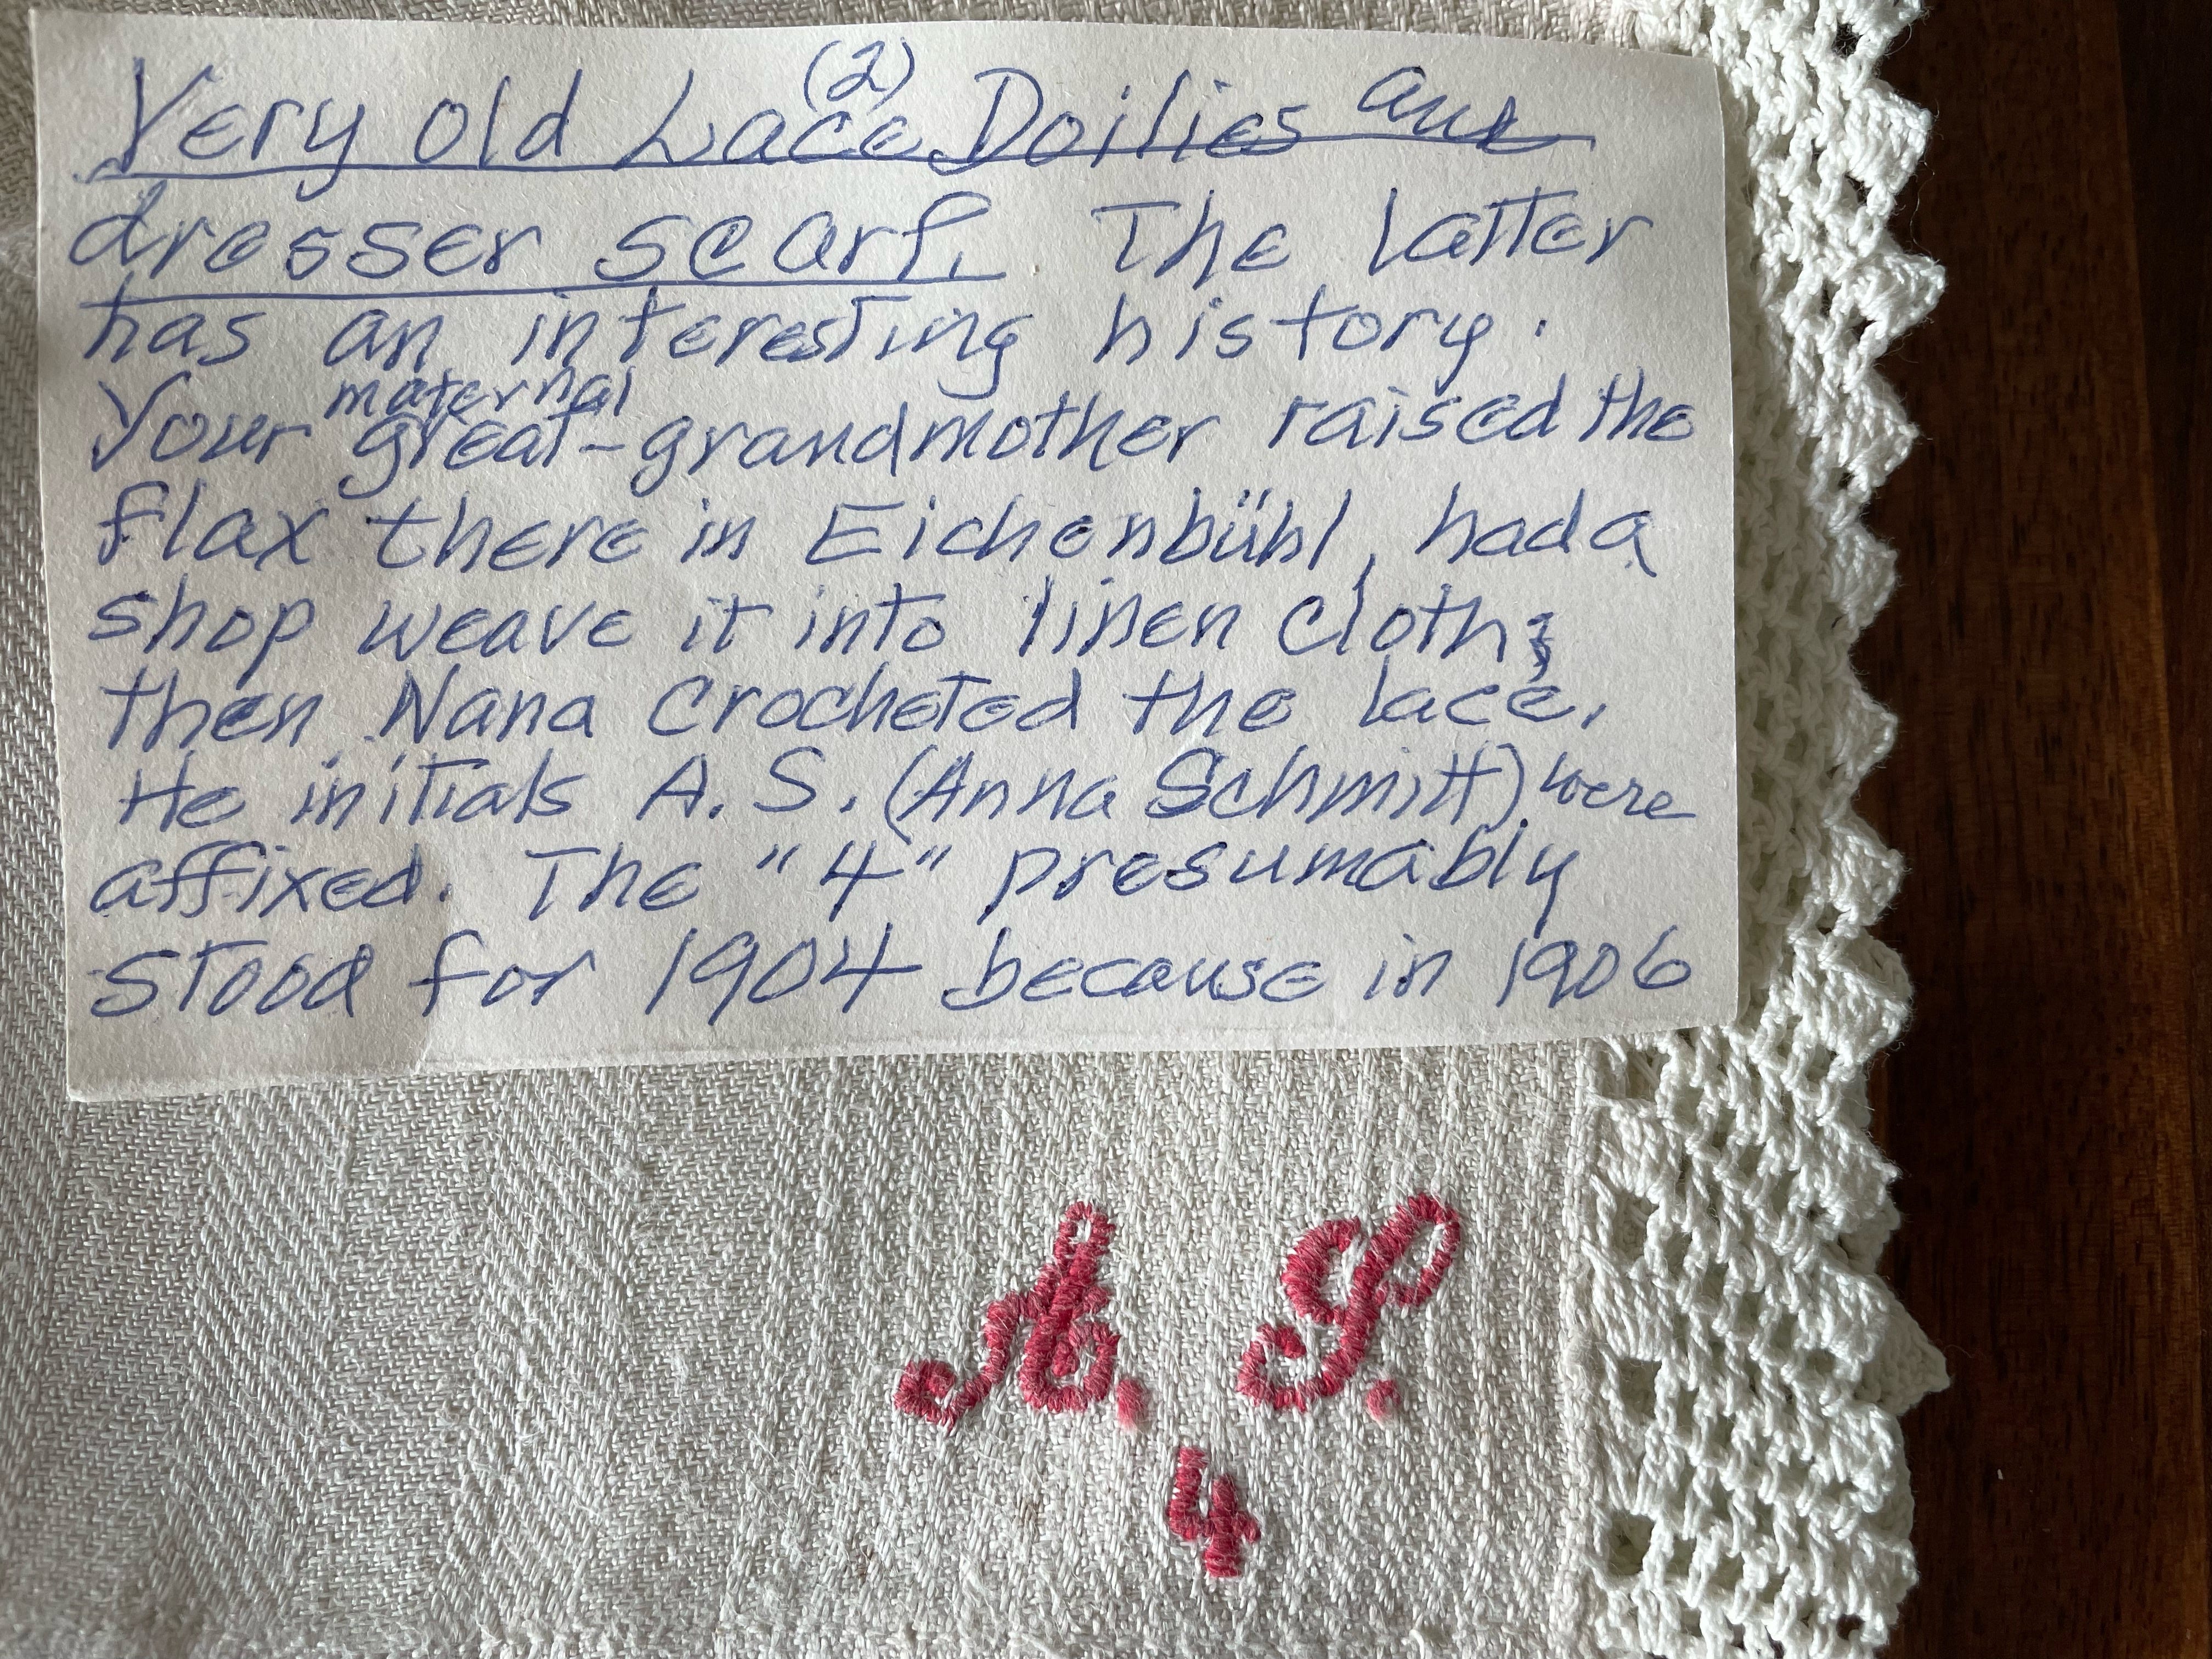 Very old Lace (2) Doilies and
dresser scarf. The latter
has an interesting history.
Your maternal great-grandmother raised the
flax there in Eichenbühl, had a
shop weave it into linen cloth;
then Nana crocheted the lace.
He initials A.S. (Anna Schmitt) were
affixed. The "4" presumably
stood for 1904 because in 1906
A. S.
4